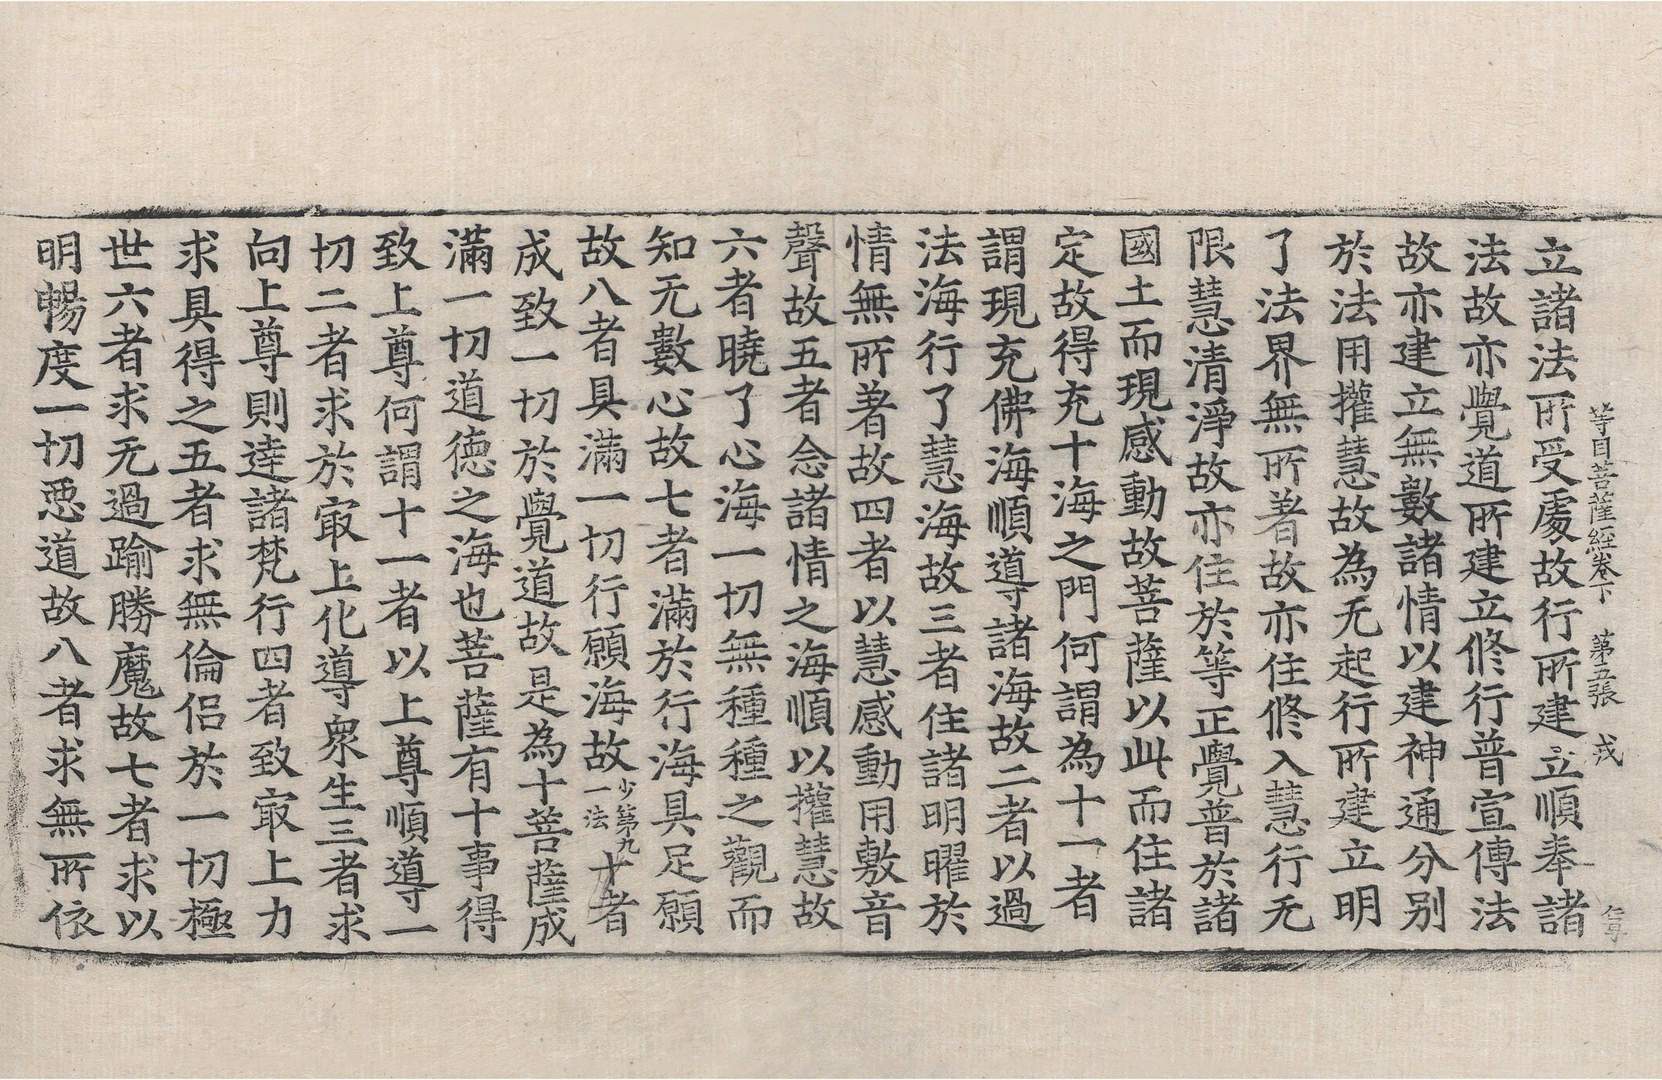 等目菩薩經卷下 第五張 戎
立諸法所受處故行所建立順奉諸
法故亦覺道所建立修行普宣傳法
故亦建立無數諸情以建神通分別
於法用權慧故為无起行所建立明
了法界無所著故亦住修入慧行无
限慧清淨故亦住於等正覺普於諸
國土而現感動故菩薩以此而住諸
定故得充十海之門何謂為十一者
謂現充佛海順導諸海故二者以過
法海行了慧海故三者住諸明曜於
情無所著故四者以慧感動用敷音
聲故五者念諸情之海順以權慧故
六者曉了心海一切無種種之觀而
知无數心故七者滿於行海具足願
故八者具滿一切行願海故少第九一法十者
成致一切於覺道故是為十菩薩成
滿一切道德之海也菩薩有十事得
致上尊何謂十一者以上尊順導一
切二者求於㝡上化導眾生三者求
向上尊則逹諸梵行四者致㝡上力
求具得之五者求無倫侣於一切極
世六者求无過踰勝魔故七者求以
明暢度一切惡道故八者求無所依